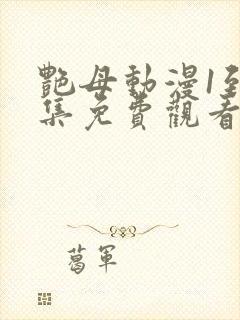 艷母動漫1至
集免費觀看
葛軍